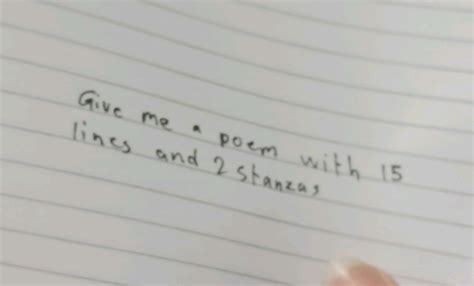 Give me a poem with 15
lines and 2 stanzas